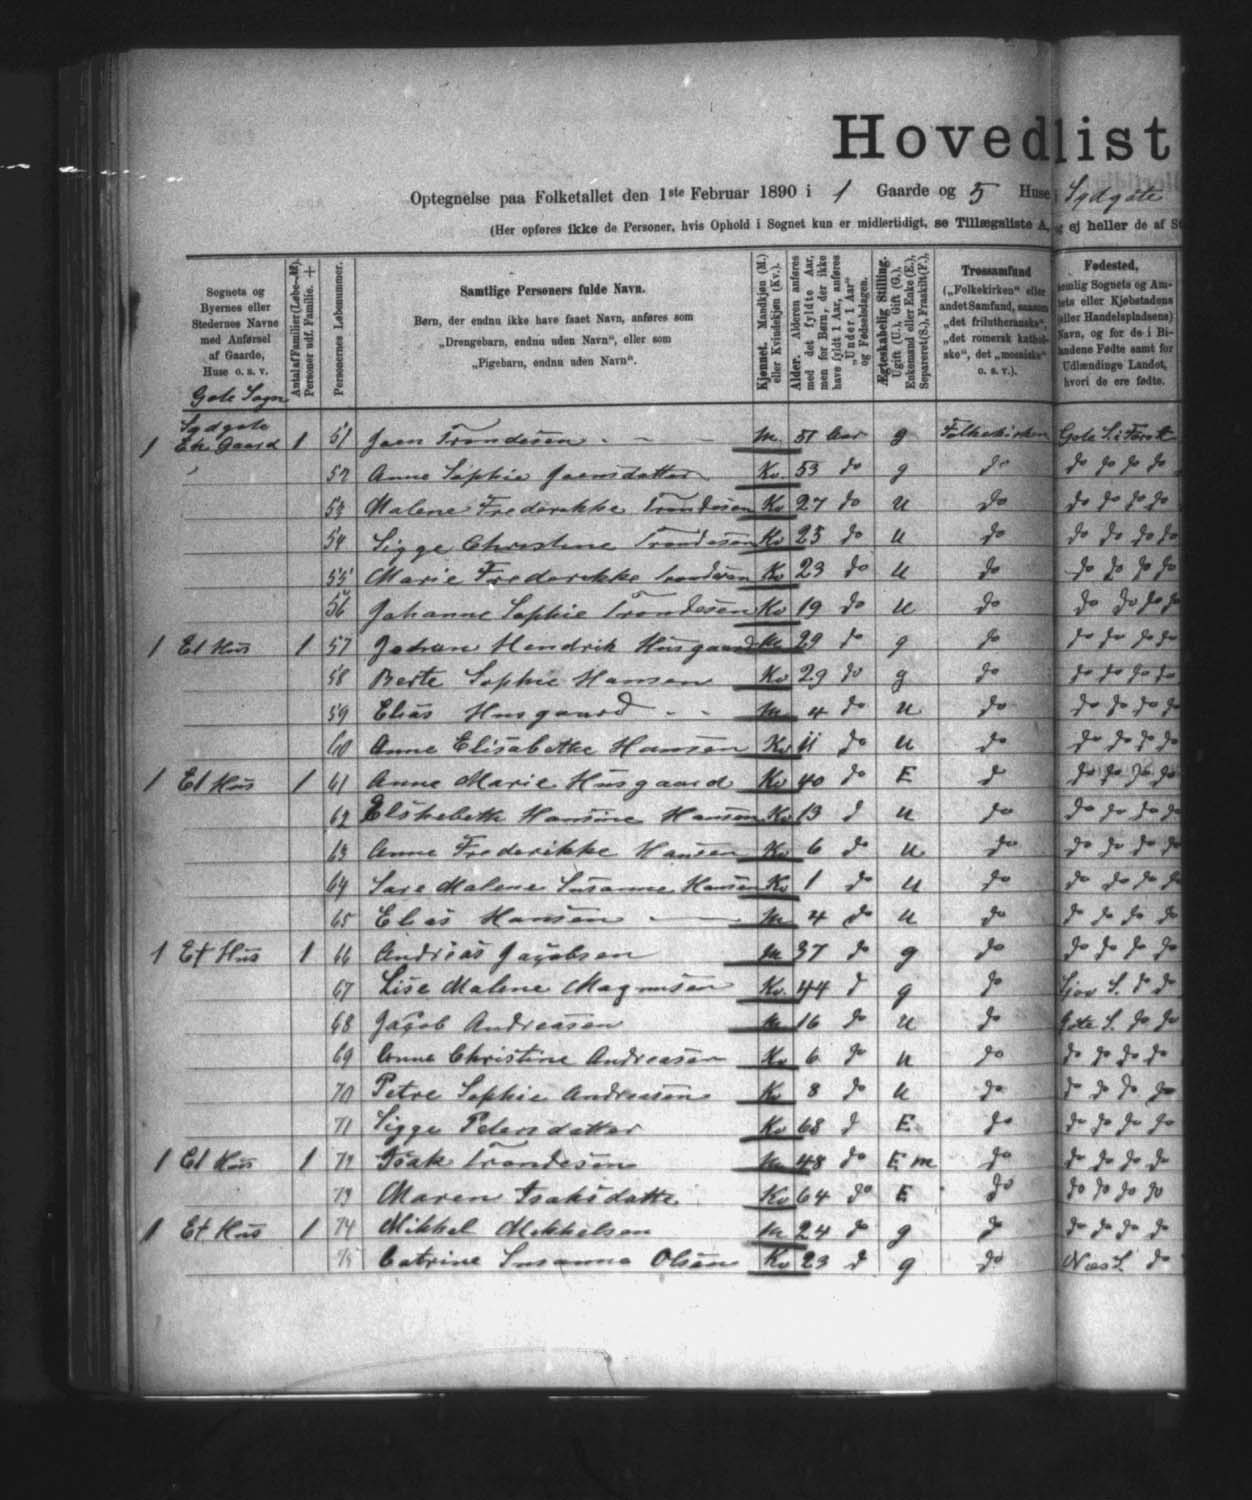 Hovedlist
Optegnelse paa Folketallet den 1ste Februar 1890 i 1 Gaarde og 5 Huse i Sydgöte
(Her opføres ikke de Personer, hvis Ophold i Sognet kun er midlertidigt, se Tillægsliste A, og ej heller de af
Sognets og Byernes eller Stedernes Navne med Anførsel af Gaarde, Huse o. s. v.
Antal af Familier (Løbe-№). Personer udf. Familie. +
Personernes Løbenummer.
Samtlige Personers fulde Navn.
Børn, der endnu ikke have faaet Navn, anføres som
„Drengebarn, endnu uden Navn“, eller som
„Pigebarn, endnu uden Navn“.
Kjønnet. Mandkjøn (M.) eller Kvindekjøn (Kv.).
Alder. Alderen anføres med det fyldte Aar, men for Børn, der ikke have fyldt 1 Aar, anføres „Under 1 Aar“ og Fødselsdagen.
Ægteskabelig Stilling. Ugift (U.), Gift (G.), Enkemand eller Enke (E.), Separeret (S.), Fraskilt (F.).
Trossamfund („Folkekirken“ eller andet Samfund, saasom „det frilutheranske“, „det romersk kathol-ske“, det „mosaiske“ o. s. v.).
Fødested,
nemlig Sognets og Am-
tets eller Kjøbstadens
(eller Handelspladsens)
Navn, og for de i Bi-
landene Fødte samt for
Udlændinge Landet,
hvori de ere fødte.
Gote Sogn
Sydgote
1 En Gaard 1 51 Joen Trondesen - - - M. 51 Aar g Folkekirken Gote S. i Færö
52 Anne Sophie Joensdatter Kv. 53 do g do do do do do
53 Malene Frederikke Trondesen Kv 27 do U do do do do do
54 Sigge Christine Trondesen Kv 25 do U do do do do do
55 Marie Frederikke Trondesen Kv 23 do U do do do do do
56 Johanne Sophie Trondesen Kv 19 do U do do do do do
1 Et Hus 1 57 Hendrik Husgaard M 29 do g do do do do do
58 Berte Sophie Hansen Kv 29 do g do do do do do
59 Elias Husgaard - - M 4 do U do do do do do
60 Anne Elisabethe Hansen Kv 11 do U do do do do do
1 Et Hus 1 61 Anne Marie Husgaard Kv 40 do E d do do do do
62 Elsebeth Hansine Hansen Kv 13 d U do do do do do
63 Anne Frederikke Hansen Kv 6 do U do do do do do
64 Sare Malene Susanne Hansen Kv 1 do U do do do do do
65 Elias Hansen M 4 do U do do do do do
1 Et Hus 1 66 Andrias Jacobsen M 37 do g do do do do do
67 Lise Malene Magnusen Kv. 44 d g do S. do do
68 Jacob Andreasen M 16 do U do Göte S. do do
69 Anne Christine Andreasen Kv 6 do U do do do do do
70 Petre Sophie Andreasen Kv 8 do U do do do do do
71 Sigge Petersdatter Kv 68 d E do do do do do
1 Et Hus 1 72 Isak Trondesen M 48 do E m do do do do do
73 Maren Isaksdatte Kv 64 do E do do do do do
1 Et Hus 1 74 Mikkel Mikkelsen M 24 do g d do do do do
75 Catrine Susanne Olsen Kv 23 d g do Næs S. do